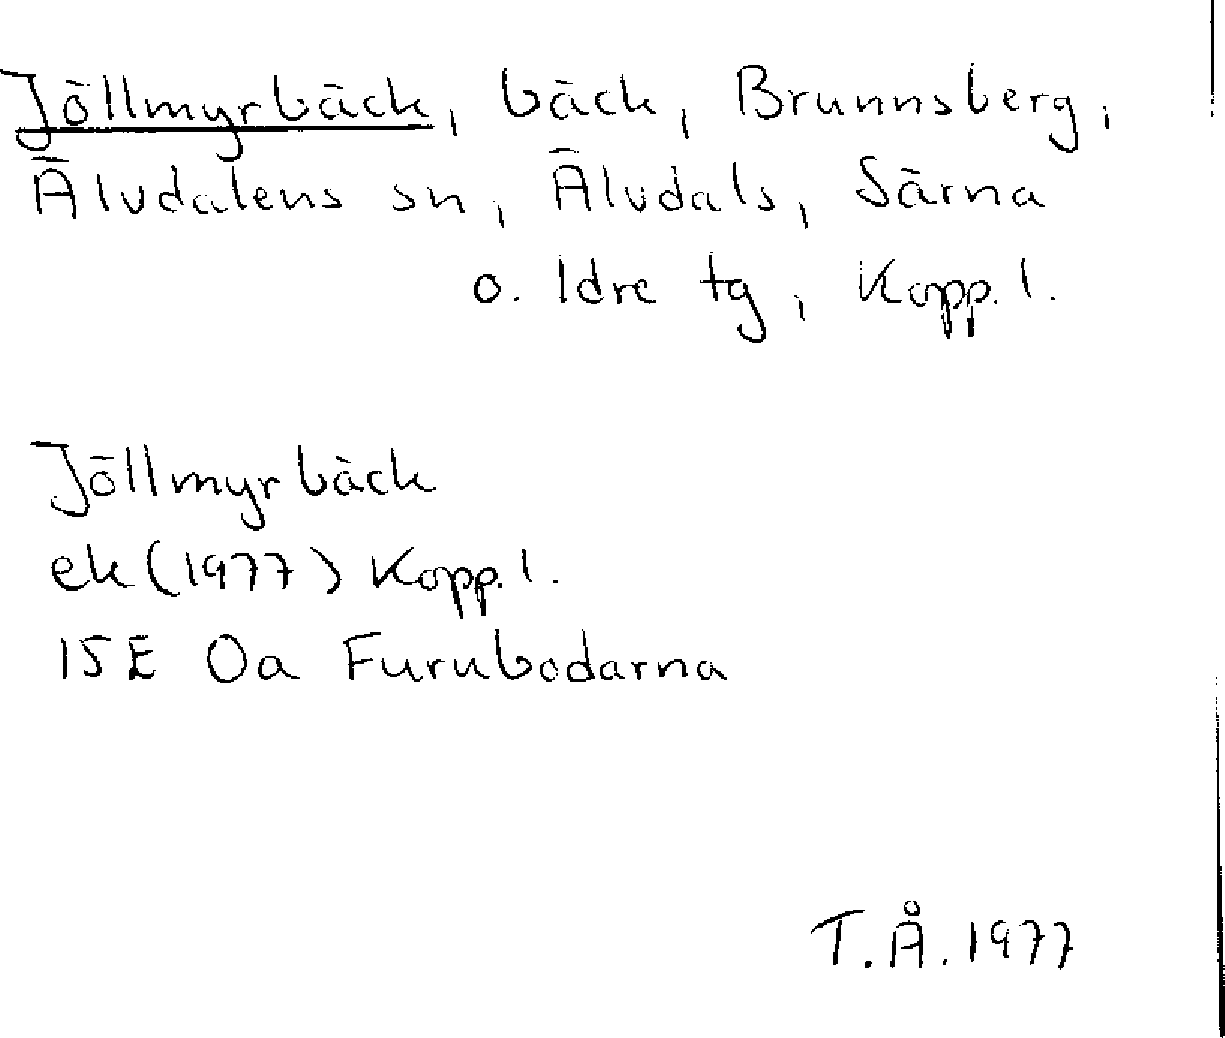 Jöllmyrbäck, bäck, Brunnsberg,
Älvdalens sn, Älvdals, Särna
o. Idre tg, Kopp. l.
Jöllmyrbäck
ek (1977) Kopp. l.
15E 0a Furubodarna
T.Å. 1977